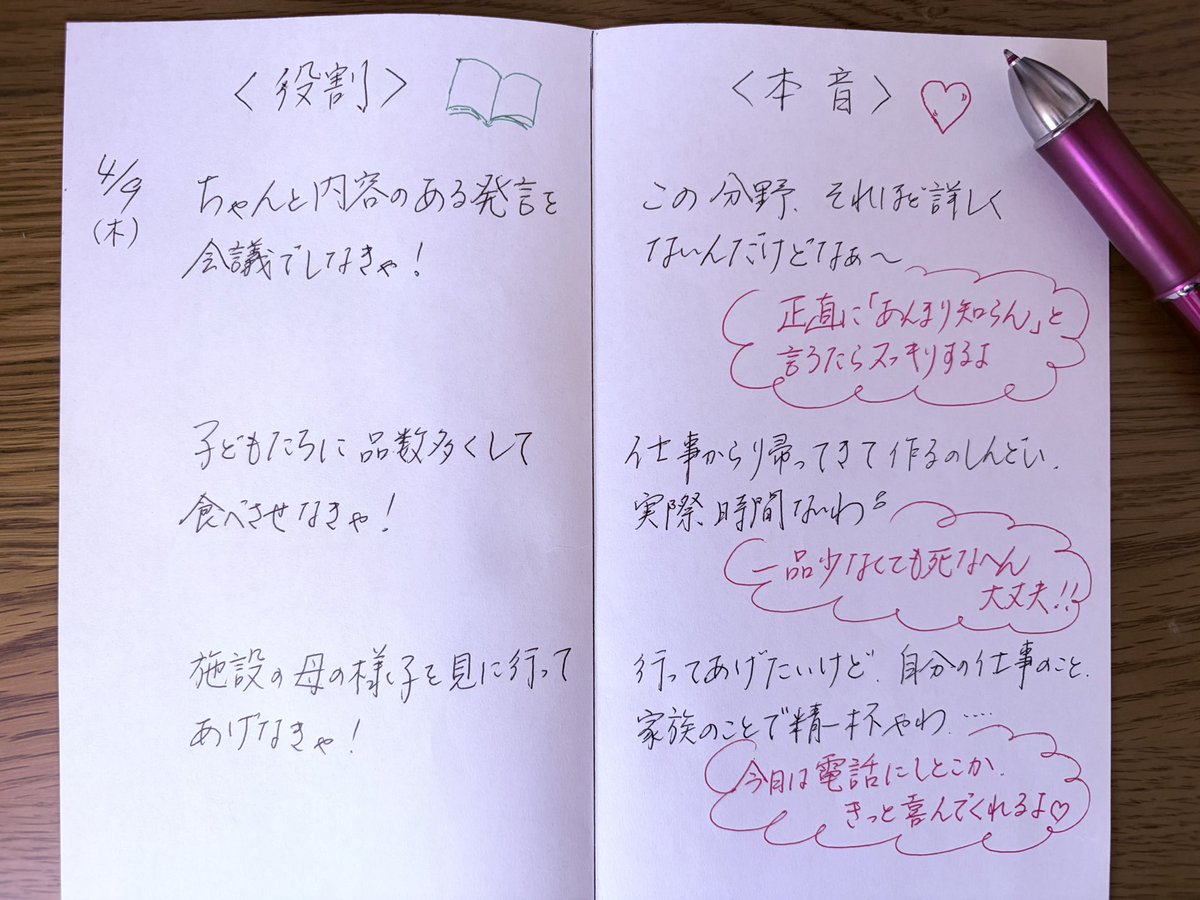 〈役割〉
4/9
(木)
ちゃんと内容のある発言を
会議でしなきゃ!
子どもたちに品数多くして
食べさせなきゃ!
施設の母の様子を見に行って
あげなきゃ!
〈本音〉
この分野、それほど詳しく
ないんだけどなぁ〜
正直に「あんまり知らん」と
言うたらスッキリするよ
仕事から帰ってきて作るのしんどい、
実際時間ないわ。
一品少なくても死なへん
大丈夫!!
行ってあげたいけど、自分の仕事のこと、
家族のことで精一杯やわ....
今日は電話にしとこか、
きっと喜んでくれるよ♡